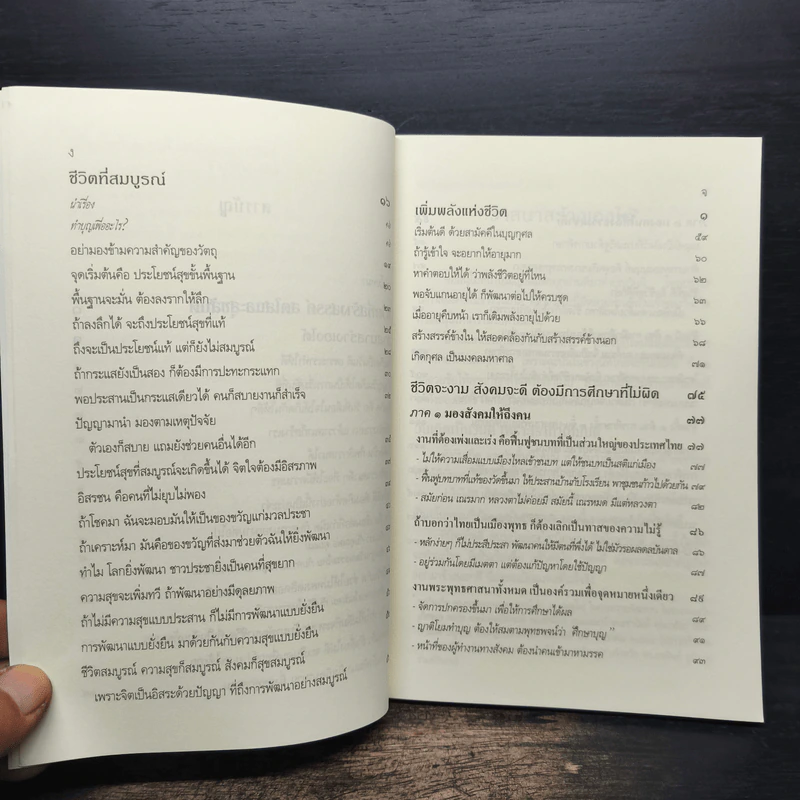 ง
ชีวิตที่สมบูรณ์ ๑๖
นำเรื่อง
ทำบุญเพื่ออะไร?
อย่ามองข้ามความสำคัญของวัตถุ
จุดเริ่มต้นคือ ประโยชน์สุขขั้นพื้นฐาน
พื้นฐานจะมั่น ต้องลงรากให้ลึก
ถ้าลงลึกได้ จะถึงประโยชน์สุขที่แท้
ถึงจะเป็นประโยชน์แท้ แต่ก็ยังไม่สมบูรณ์
ถ้ากระแสยังเป็นสอง ก็ต้องมีการปะทะกระแทก
พอประสานเป็นกระแสเดียวได้ คนก็สบายงานก็สำเร็จ
ปัญญามานำ มองตามเหตุปัจจัย
ตัวเองก็สบาย แถมยังช่วยคนอื่นได้อีก
ประโยชน์สุขที่สมบูรณ์จะเกิดขึ้นได้ จิตใจต้องมีอิสรภาพ
อิสรชน คือคนที่ไม่ยุบไม่พอง
ถ้าโชคมา ฉันจะมอบมันให้เป็นของขวัญแก่มวลประชา
ถ้าเคราะห์มา มันคือของขวัญที่ส่งมาช่วยตัวฉันให้ยิ่งพัฒนา
ทำไม โลกยิ่งพัฒนา ชาวประชายิ่งเป็นคนที่สุขยาก
ความสุขจะเพิ่มทวี ถ้าพัฒนาอย่างมีดุลยภาพ
ถ้าไม่มีความสุขแบบประสาน ก็ไม่มีการพัฒนาแบบยั่งยืน
การพัฒนาแบบยั่งยืน มาด้วยกันกับความสุขแบบยั่งยืน
ชีวิตสมบูรณ์ ความสุขก็สมบูรณ์ สังคมก็สุขสมบูรณ์
เพราะจิตเป็นอิสระด้วยปัญญา ที่ถึงการพัฒนาอย่างสมบูรณ์
จ
เพิ่มพลังแห่งชีวิต ๑
เริ่มต้นดี ด้วยสามัคคีในบุญกุศล ๕๙
ถ้ารู้เข้าใจ จะอยากให้อายุมาก ๖๐
หาคำตอบให้ได้ ว่าพลังชีวิตอยู่ที่ไหน ๖๒
พอจับแกนอายุได้ ก็พัฒนาต่อไปให้ครบชุด ๖๓
เมื่ออายุคืบหน้า เราก็เติมพลังอายุไปด้วย ๖๖
สร้างสรรค์ข้างใน ให้สอดคล้องกันกับสร้างสรรค์ข้างนอก ๖๘
เกิดกุศล เป็นมงคลมหาศาล ๗๑
ชีวิตจะงาม สังคมจะดี ต้องมีการศึกษาที่ไม่ผิด ๗๕
ภาค ๑ มองสังคมให้ถึงคน ๗๗
งานที่ต้องเพ่งและเร่ง คือฟื้นฟูชนบทที่เป็นส่วนใหญ่ของประเทศไทย ๗๗
- ไม่ให้ความเสื่อมแบบเมืองไหลเข้าชนบท แต่ให้ชนบทเป็นสติแก่เมือง ๗๗
- ฟื้นฟูบทบาทที่แท้ของวัดขึ้นมา ให้ประสานบ้านกับโรงเรียน พาชุมชนก้าวไปด้วยกัน ๗๙
- สมัยก่อน เณรมาก หลวงตาไม่ค่อยมี สมัยนี้ เณรหมด มีแต่หลวงตา ๘๒
ถ้าบอกว่าไทยเป็นเมืองพุทธ ก็ต้องเลิกเป็นทาสของความไม่รู้ ๘๖
- หลักง่ายๆ ก็ไม่ประสีประสา พัฒนาคนให้มีตนที่พึ่งได้ ไม่ใช่มัวรอผลดลบันดาล ๘๖
- อยู่ร่วมกันโดยมีเมตตา แต่ต้องแก้ปัญหาโดยใช้ปัญญา ๘๗
งานพระพุทธศาสนาทั้งหมด เป็นองค์รวมเพื่อจุดหมายหนึ่งเดียว ๘๙
- จัดการปกครองขึ้นมา เพื่อให้การศึกษาได้ผล ๘๙
- ญาติโยมทำบุญ ต้องให้สมตามพุทธพจน์ว่า "ศึกษาบุญ" ๙๑
- หน้าที่ของผู้ทำงานทางสังคม ต้องนำคนเข้ามาหามรรค ๙๓